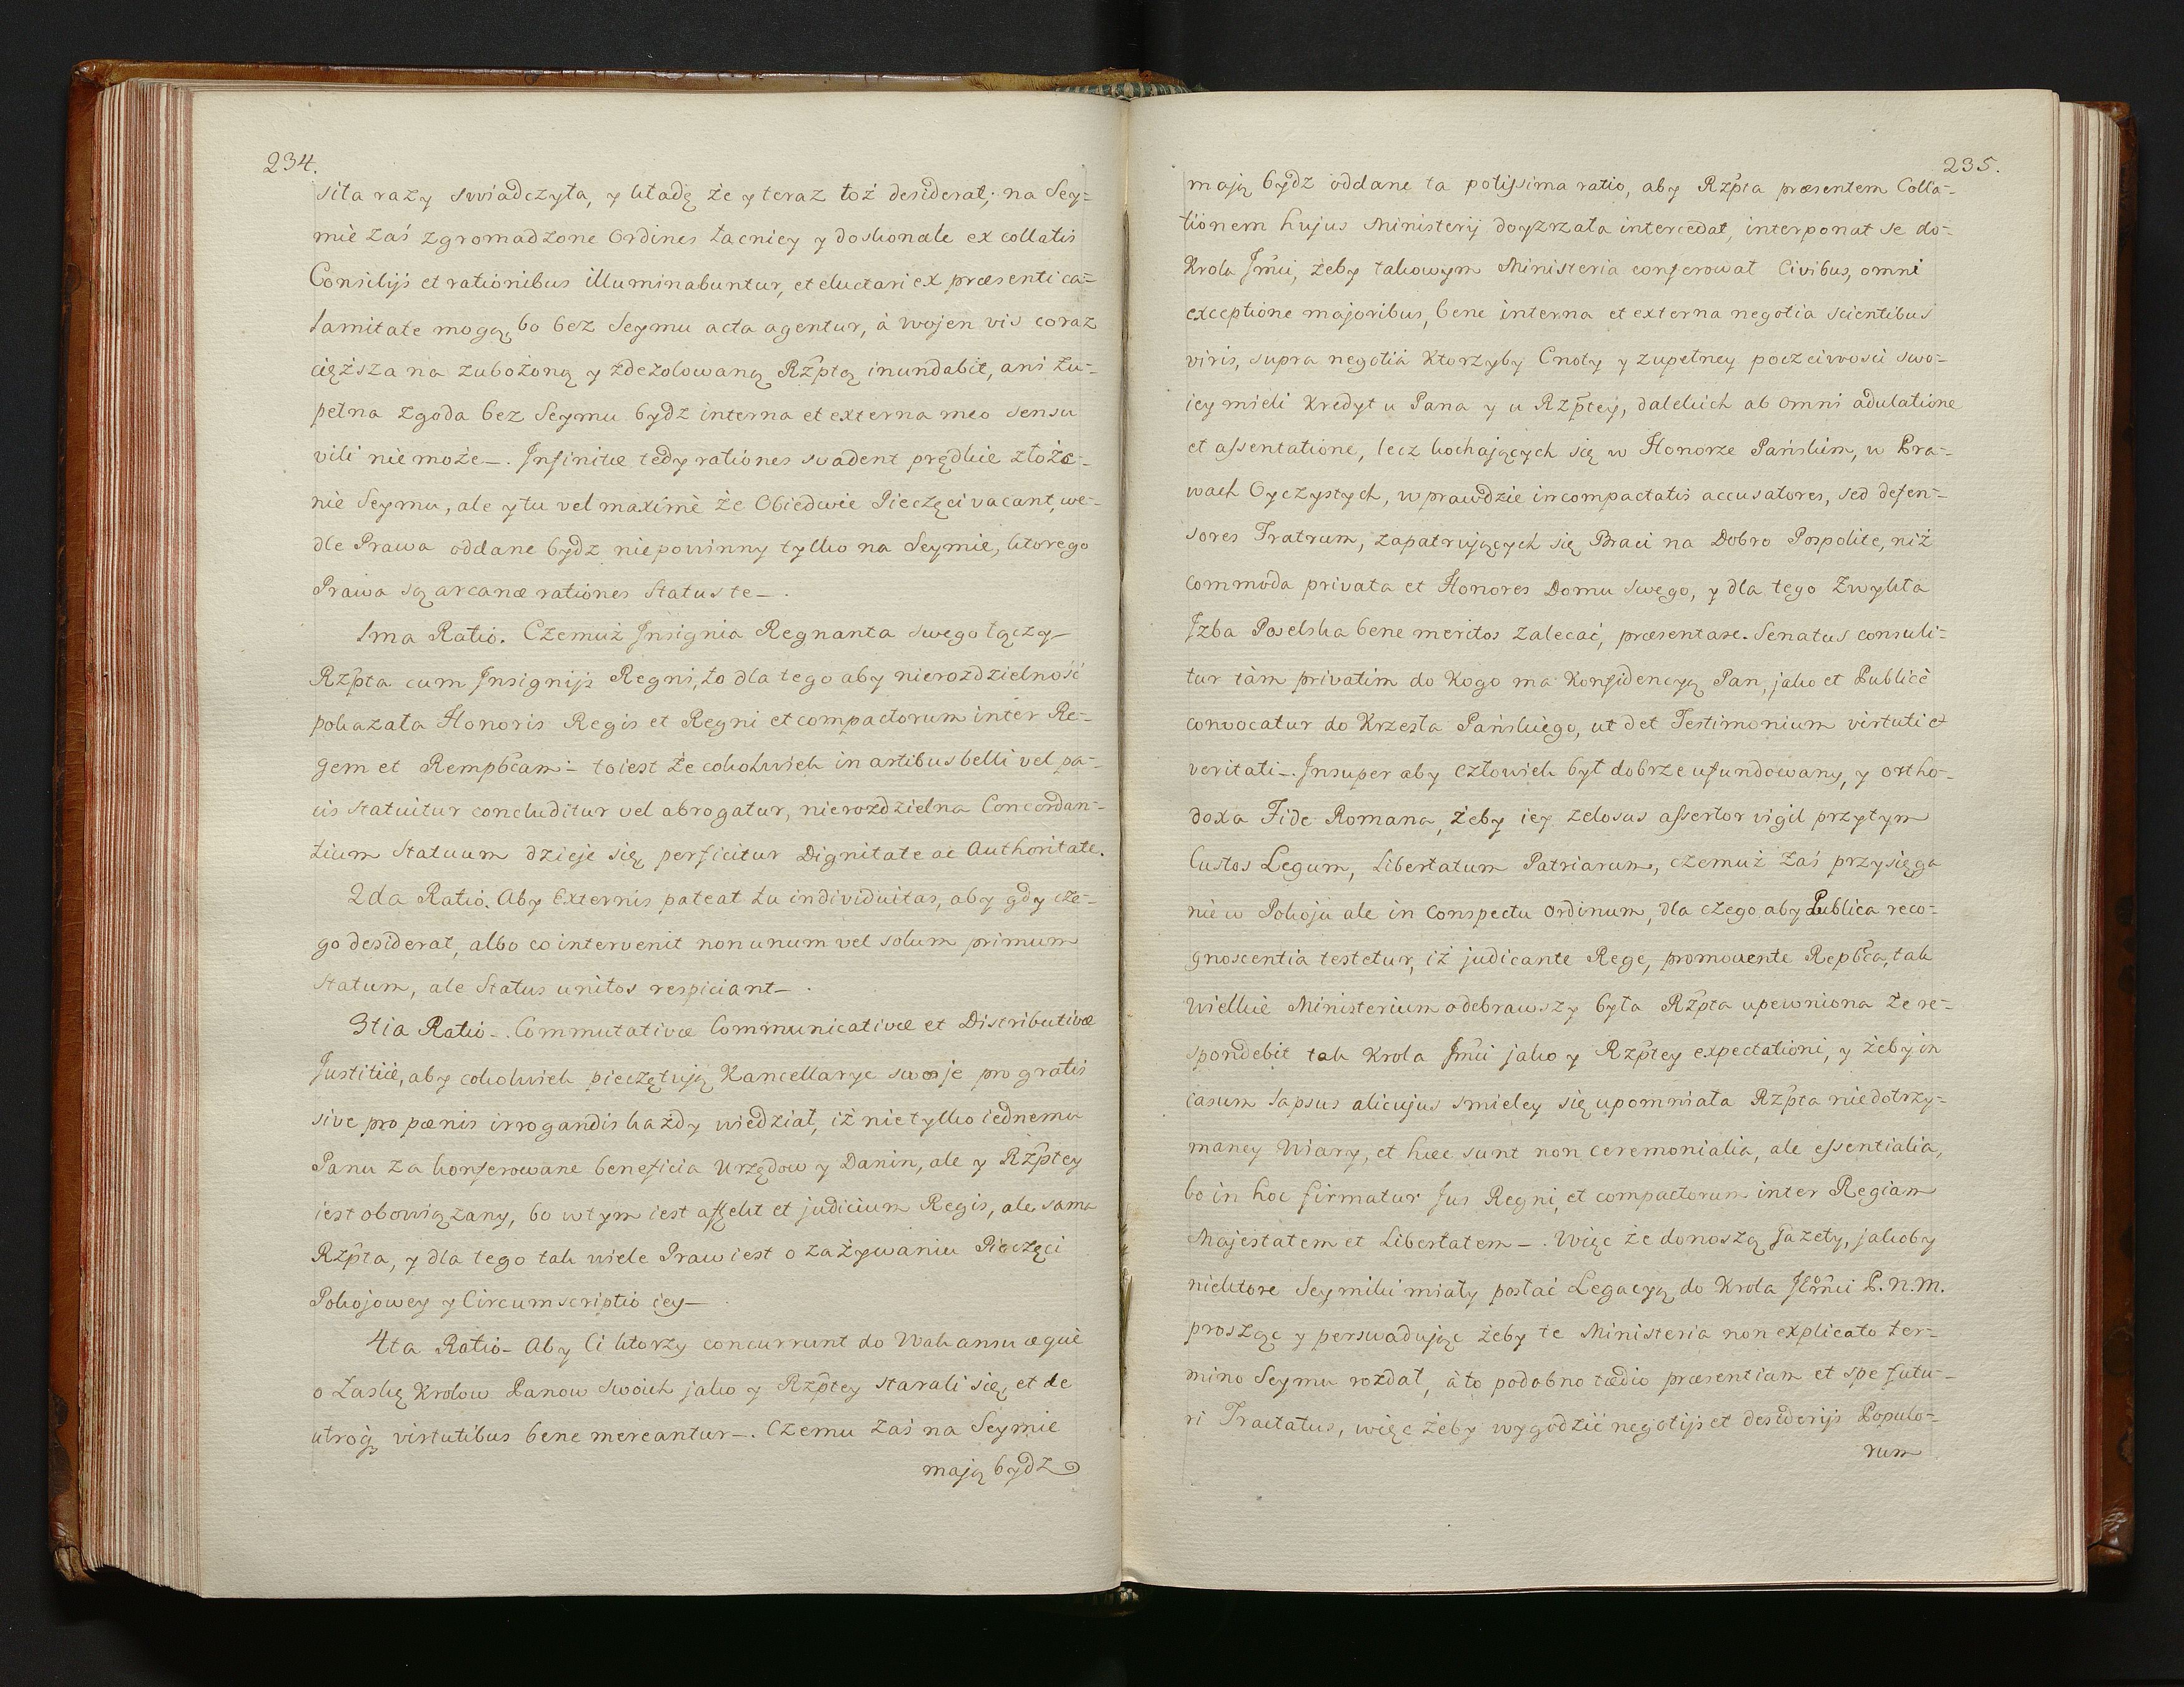 234.
siła razy swiadczyła, y kładę że y teraz toż desiderat; na Sey-
mie zaś zgromadzone Ordines łacniey y doskonale ex collatis
Consilijs et rationibus illuminabuntur, et eluctari ex præsenti ca-
lamitate mogą, bo bez Seymu acta agentur, à wojen vis coraz
cięższa na zubożoną y zdezolowaną Rzptą inundabit, ani zu-
pełna zgoda bez Seymu bydz interna et externa meo sensu
vili nie może_. Infinitæ tedy rationes svadent prędkie złoże-
nie Seymu, ale y tu vel maximè że Obiedwie Pieczęci vacant, we-
dle Prawa oddane bydz niepowinny tylko na Seymie, ktorego
Prawa są arcanæ rationes Status te_.
1ma Ratio. Czemuż Insignia Regnanta swego łączy
Rzpta cum Insignijs Regni, to dla tego aby nierozdzielność
pokazała Honoris Regis et Regni et compactorum inter Re-
gem et Rempbcam- toiest że cokolwiek in artibus belli vel pa-
cis statuitur concluditur vel abrogatur, nierozdzielna Concordan-
tium Statuum dzieje się, perficitur Dignitate ac Authoritate.
2da Ratio. Aby Externis pateat ta individuitas, aby gdy cze-
go desiderat, albo co intervenit non unum vel solum primum
Statum, ale Status unitos respiciant_.
3tia Ratio_. Commutativæ Communicativæ et Distributivæ
Justitiæ, aby cokolwiek pieczętują Kancellarye swoje pro gratis
sive pro pœnis irrogandis każdy wiedział, iż nie tylko iednemu
Panu za konferowane beneficia Urzędow y Danin, ale y Rzptey
iest obowiązany, bo w tym iest affekt et judicium Regis, ale sama
Rzpta, y dla tego tak wiele Praw iest o zażywaniu Pieczęci
Pokojowey y Circumscriptio iey_
4ta Ratio_ Aby Ci ktorzy concurrunt do Wakansu æquè
o Łaskę Krolow Panow swoich jako y Rzptey starali się, et de
utroq virtutibus bene mereantur_. Czemu zaś na Seymie
mają bydz
235.
mają bydz oddane ta potissima ratio, aby Rzpta præsentem Colla-
tionem hujus Ministerij doyzrzała intercedat, interponat se do
Krola Jmci, żeby takowym Ministeria conferował Civibus, omni
exceptione majoribus, bene interna et externa negotia scientibus
viris, supra negotia ktorzyby Cnoty y zupełney poczciwości swo-
iey mieli kredyt u Pana y u Rzptey, dalekich ab omni adulatione
et assentatione, lecz kochających się w Honorze Pańskim, w Pra-
wach Oyczystych, w prawdzie incompactatis accusatores, sed defen-
sores Fratrum, zapatrujących się Braci na Dobro Pospolite, niż
commoda privata et Honores Domu swego, y dla tego zwykła
Jzba Poselska bene meritos zalecać, præsentare. Senatus consuli-
tur tàm privatim do Kogo ma Konfidencyą Pan, jako et Publicè
convocatur do Krzesła Pańskiego, ut det Testimonium virtuti et
veritati_. Insuper aby człowiek był dobrze ufundowany, y ortho-
doxa Fide Romana, żeby iey zelosus assertor vigil przytym
Custos Legum, Libertatum Patriarum, czemuż zaś przysięga
nie w Pokoju ale in Conspectu Ordinum, dla czego aby Publica reco-
gnoscentia testetur, iż judicante Rege, promovente Repbca, tak
wielkie Ministerium odebrawszy była Rzpta upewniona że re-
spondebit tak Krola Jmci jako y Rzptey expectationi, y żeby in
casum lapsus alicujus smieley się upomniała Rzpta niedotrzy-
maney Wiary, et hæc sunt non ceremonialia, ale essentialia,
bo in hoc firmatur Jus Regni, et compactorum inter Regiam
Majestatem et Libertatem_. Więc że donoszą Gazety, jakoby
niektore Seymiki miały posłać Legacyą do Krola JKmci P. N. M.
prosząc y perswadując żeby te Ministeria non explicato ter-
mino Seymu rozdał, à to podobno tædio præsentiam et spe futu-
ri Tractatus, więc żeby wygodzić negotijs et desiderijs Populo-
rum